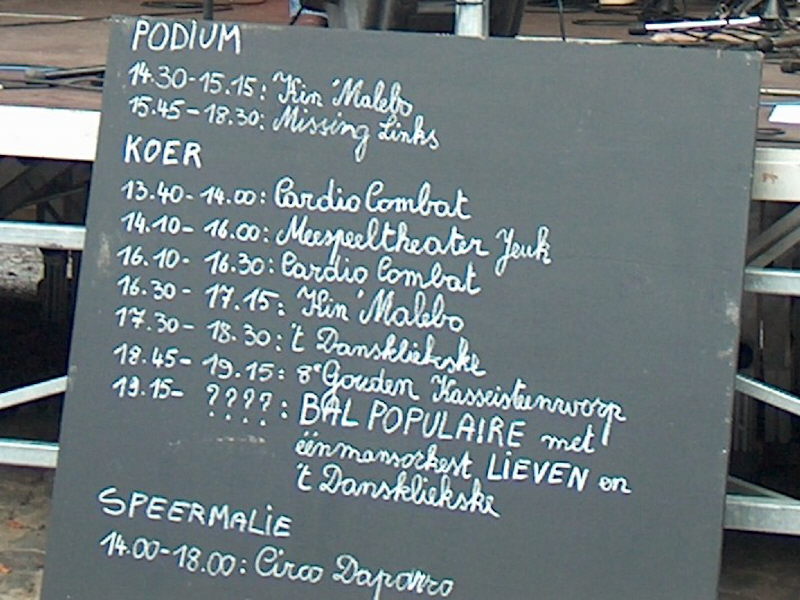 PODIUM
14.30-15.15: Kin'Malebo
15.45-18.30: Missing Links
KOER
13.40-14.00: Cardio Combat
14.10-16.00: Meespeeltheater Jeuk
16.10-16.30: Cardio Combat
16.30-17.15: Kin'Malebo
17.30-18.30: 't Danskliekske
18.45-19.15: 8e Gouden Kasseisteenworp
19.15-????: BAL POPULAIRE met
éénmansorkest LIEVEN en
't Danskliekske
SPEERMALIE
14.00-18.00: Circo Daparro